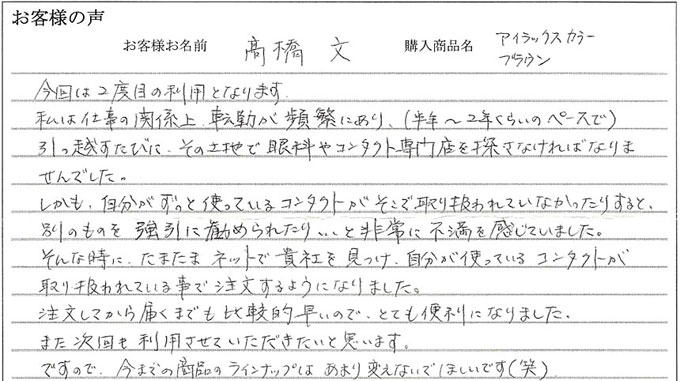 お客様の声
お客様お名前 髙橋 文 購入商品名 アイラックスカラー
ブラウン
今回は2度目の利用となります。
私は仕事の関係上、転勤が頻繁にあり、(半年〜2年くらいのペースで)
引っ越すたびに、その土地で眼科やコンタクト専門店を探さなければなりま
せんでした。
しかも、自分がずっと使っているコンタクトがそこで取り扱われていなかったりすると、
別のものを強引に勧められたり、、、と非常に不満を感じていました。
そんな時に、たまたまネットで貴社を見つけ、自分が使っているコンタクトが
取り扱われている事で注文するようになりました。
注文してから届くまでも比較的早いので、とても便利になりました。
また次回も利用させていただきたいと思います。
ですので、今までの商品のラインナップはあまり変えないでほしいです(笑)